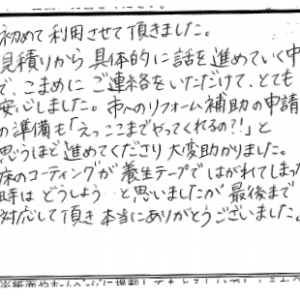 初めて利用させて頂きました。
見積りから具体的に話を進めていく中
で、こまめにご連絡をいただけて、とても
安心しました。市へのリフォーム補助の申請
の準備も「えっここまでやってくれるの?!」と
思うほど進めてくださり大変助かりました。
床のコーティングが養生テープではがれてしまった
時はどうしようと思いましたが最後まで
対応して頂き本当にありがとうございました。